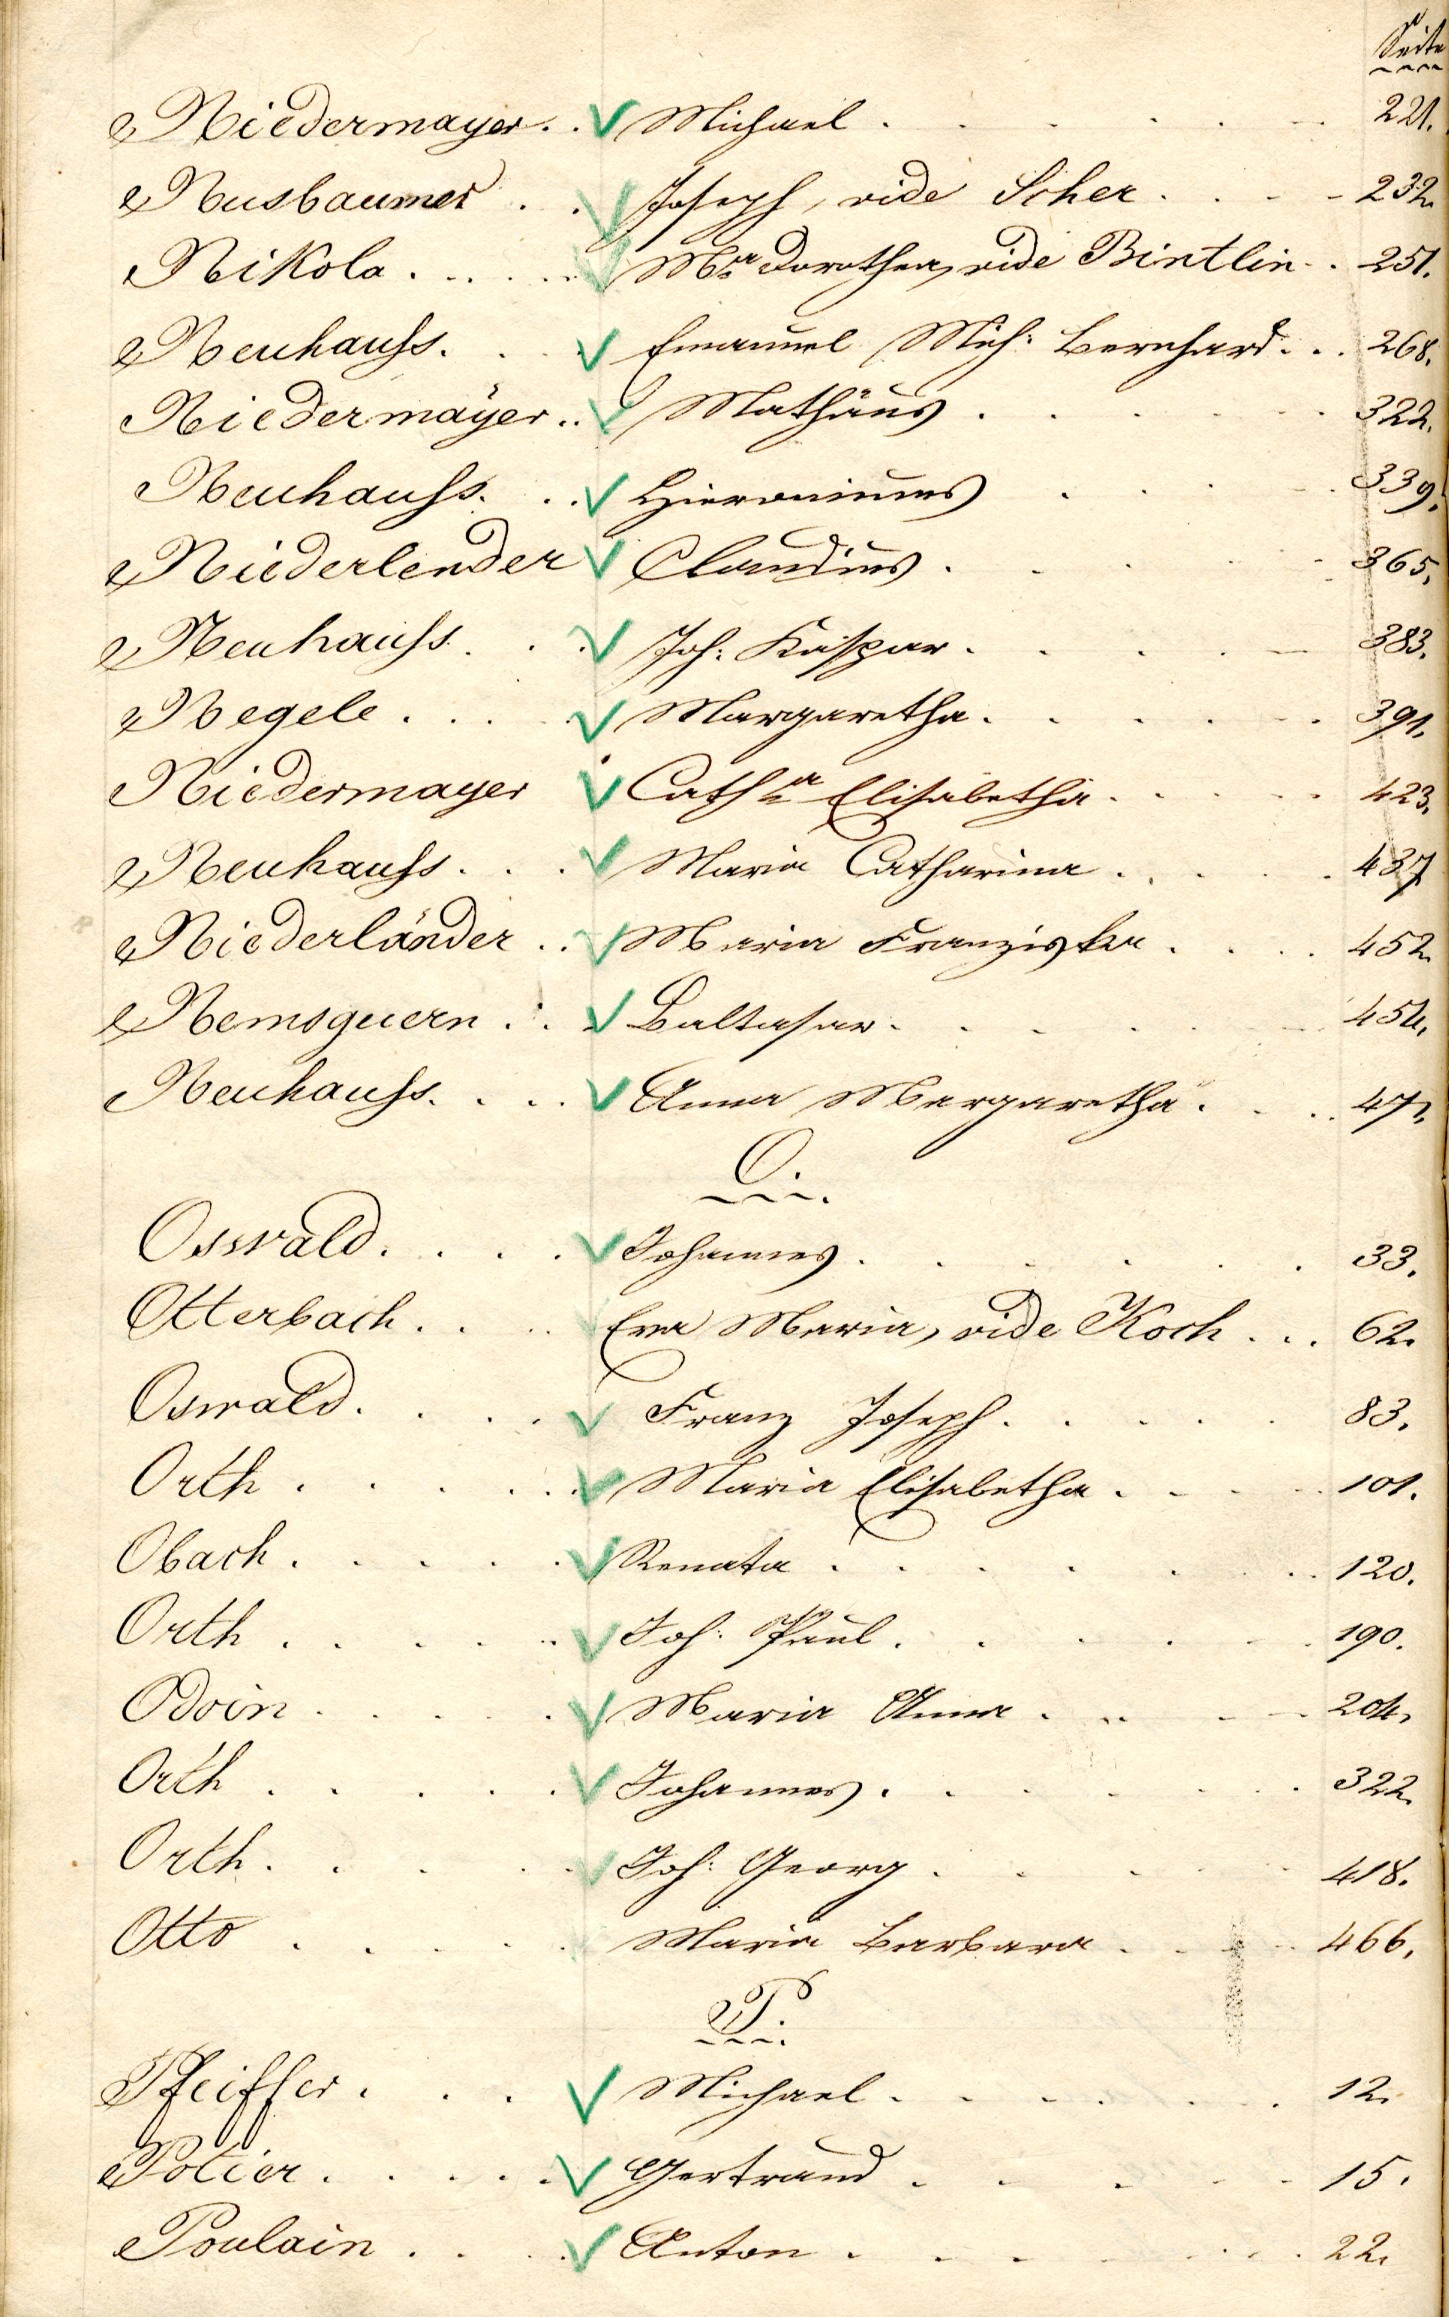 Seite
Niedermayer . . Michael . . . . . . 221.
Nusbaumer . . Joseph, vide Scher . . . . 232.
Nikola . . . . Ma. Dorothea, vide Bintlin . . 251.
Neuhauß . . . Emanuel Mich: Bernhard . . . 268.
Niedermaÿer . . Mathäus . . . . . . 322.
Neuhauß . . Hieronimus . . . . 339.
Niederlender Claudius . . . . . 365.
Neuhauß . . . Joh: Kaspar . . . . . 383.
Negele . . . . Margaretha . . . . . 391.
Niedermayer Catha. Elisabetha . . . . 423.
Neuhauß . . . Maria Catharina . . . . 437
Niederländer . . Maria Franziska . . . 452.
Nemsguern . . . Baltasar . . . . . 454.
Neuhauß . . . . Anna Margaretha . . . 471.
O.
Osswald . . . . Johannes . . . . . . 33.
Otterbach . . . . Eva Maria, vide Koch . . . 62.
Oswald . . . . Franz Joseph . . . . . 83.
Orth . . . . . Maria Elisabetha . . . . 101.
Obach . . . . . Renata . . . . . . 120.
Orth . . . . . Joh: Paul . . . . . . 190.
Odoin . . . . . Maria Anna . . . . 204.
Orth . . . . . Johannes . . . . . . 322.
Orth . . . . . Joh: Georg . . . . . 418.
Otto . . . . . Maria Barbara . . . . 466.
P.
Pfeiffer . . . Michael . . . . . . 12.
Potier . . . . . Gertraud . . . . . 15.
Poulain . . . . Anton . . . . . . 22.